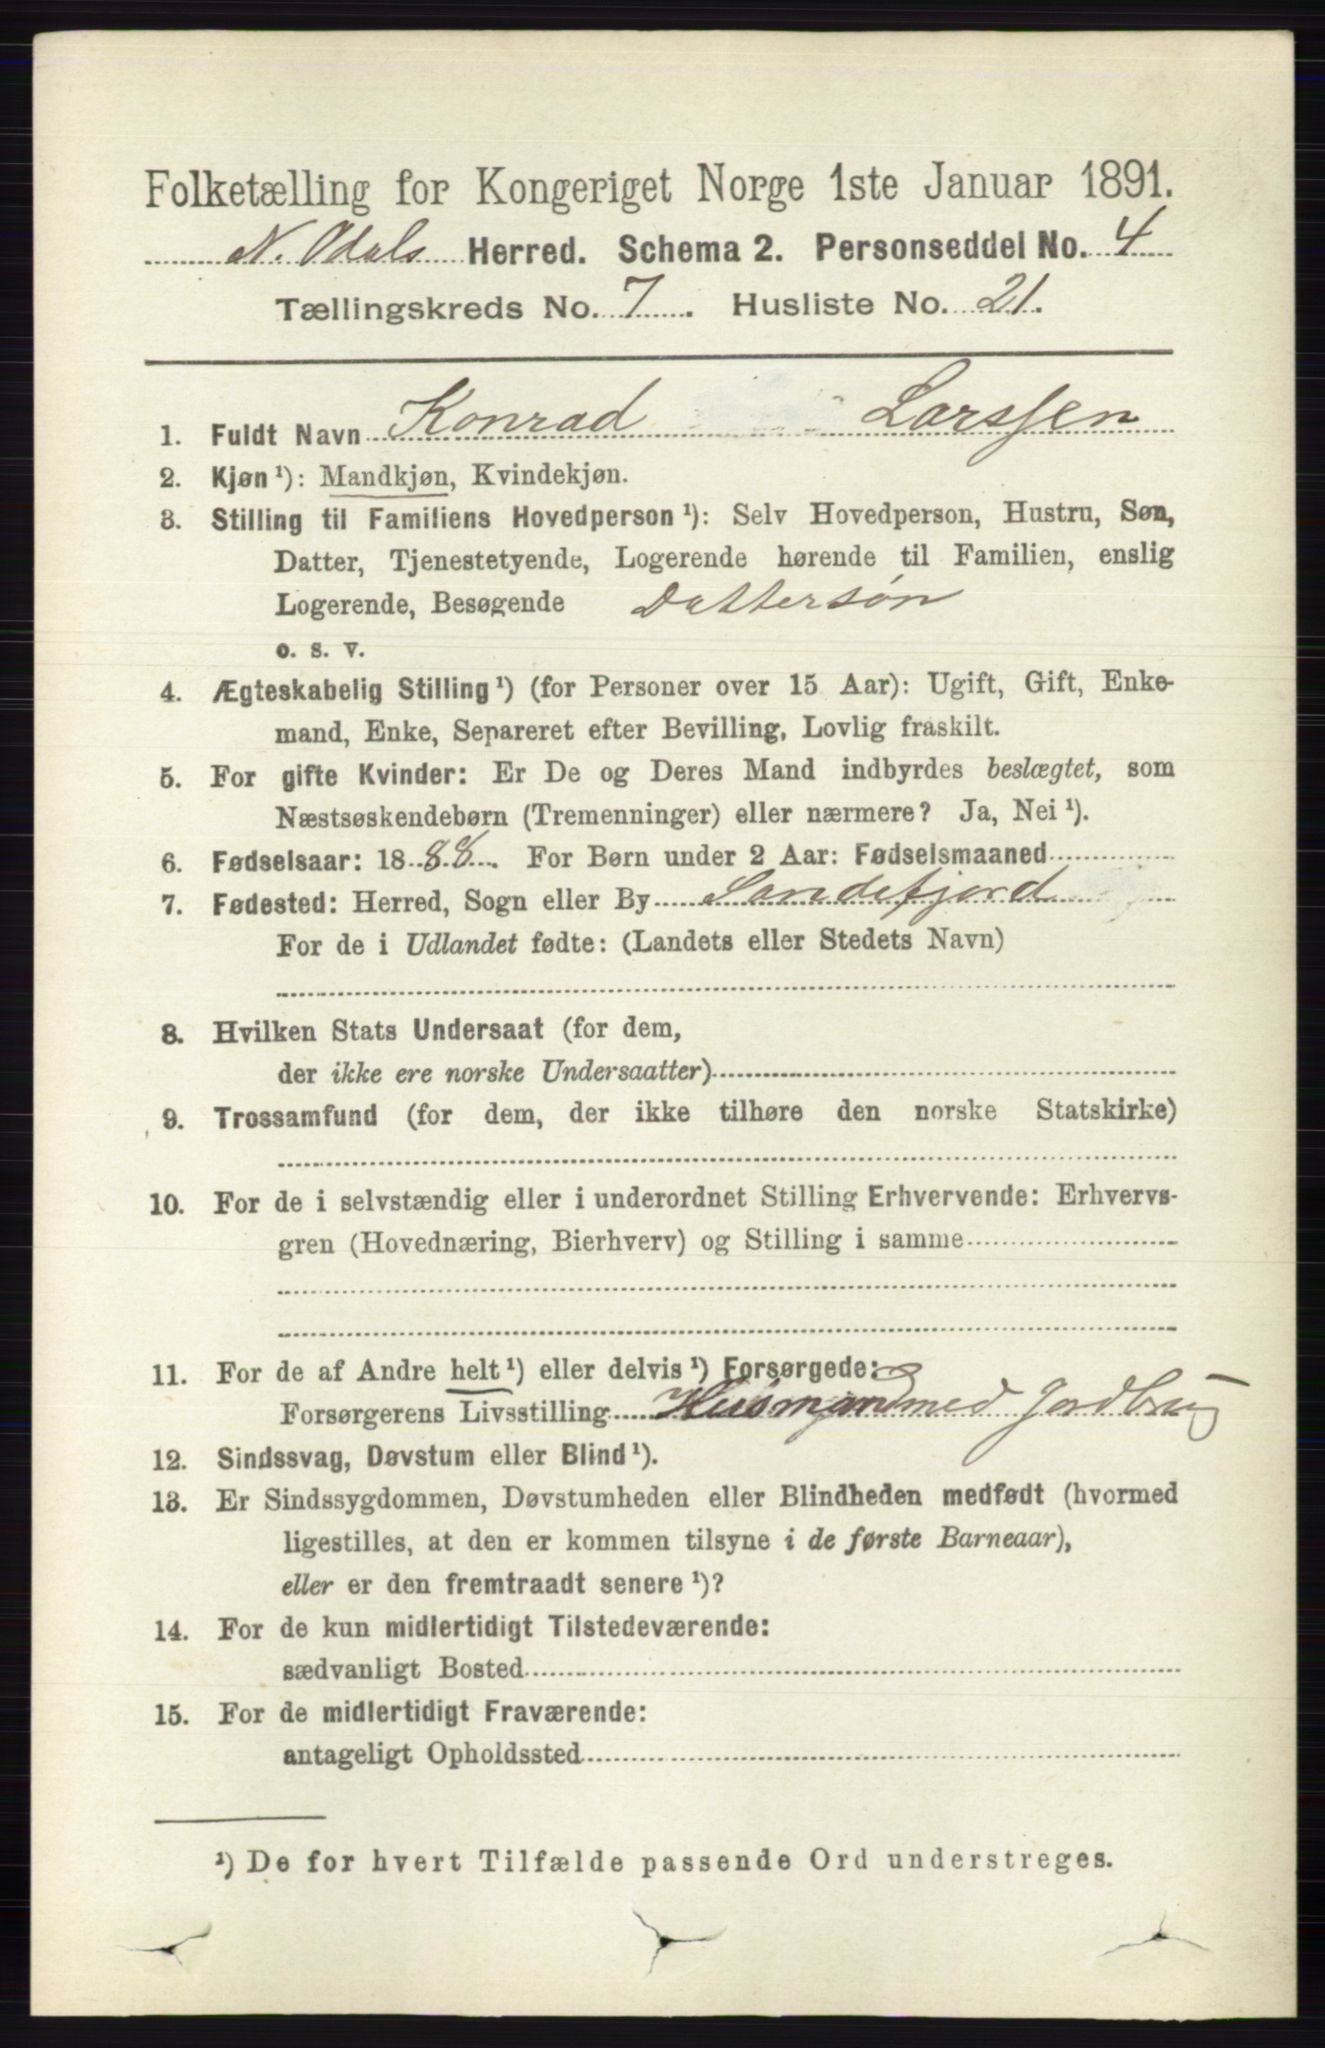 Folketælling for Kongeriget Norge 1ste Januar 1891.
N. Odals Herred. Schema 2. Personseddel No. 4
Tællingskreds No. 7. Husliste No. 21.
1. Fuldt Navn Konrad Larssen
2. Kjøn ¹): Mandkjøn, Kvindekjøn.
3. Stilling til Familiens Hovedperson ¹): Selv Hovedperson, Hustru, Søn,
Datter, Tjenestetyende, Logerende hørende til Familien, enslig
Logerende, Besøgende Dattersøn
o. s. v.
4. Ægteskabelig Stilling ¹) (for Personer over 15 Aar): Ugift, Gift, Enke-
mand, Enke, Separeret efter Bevilling, Lovlig fraskilt.
5. For gifte Kvinder: Er De og Deres Mand indbyrdes beslægtet, som
Næstsøskendebørn (Tremenninger) eller nærmere? Ja, Nei ¹).
6. Fødselsaar: 1888. For Børn under 2 Aar: Fødselsmaaned
7. Fødested: Herred, Sogn eller By Sandefjord
For de i Udlandet fødte: (Landets eller Stedets Navn)
8. Hvilken Stats Undersaat (for dem,
der ikke ere norske Undersaatter)
9. Trossamfund (for dem, der ikke tilhøre den norske Statskirke)
10. For de i selvstændig eller i underordnet Stilling Erhvervende: Erhvervs-
gren (Hovednæring, Bierhverv) og Stilling i samme
11. For de af Andre helt ¹) eller delvis ¹) Forsørgede:
Forsørgerens Livsstilling Husmand med Jordbrug
12. Sindssvag, Døvstum eller Blind ¹).
13. Er Sindssygdommen, Døvstumheden eller Blindheden medfødt (hvormed
ligestilles, at den er kommen tilsyne i de første Barneaar),
eller er den fremtraadt senere ¹)?
14. For de kun midlertidigt Tilstedeværende:
sædvanligt Bosted
15. For de midlertidigt Fraværende:
antageligt Opholdssted
¹) De for hvert Tilfælde passende Ord understreges.